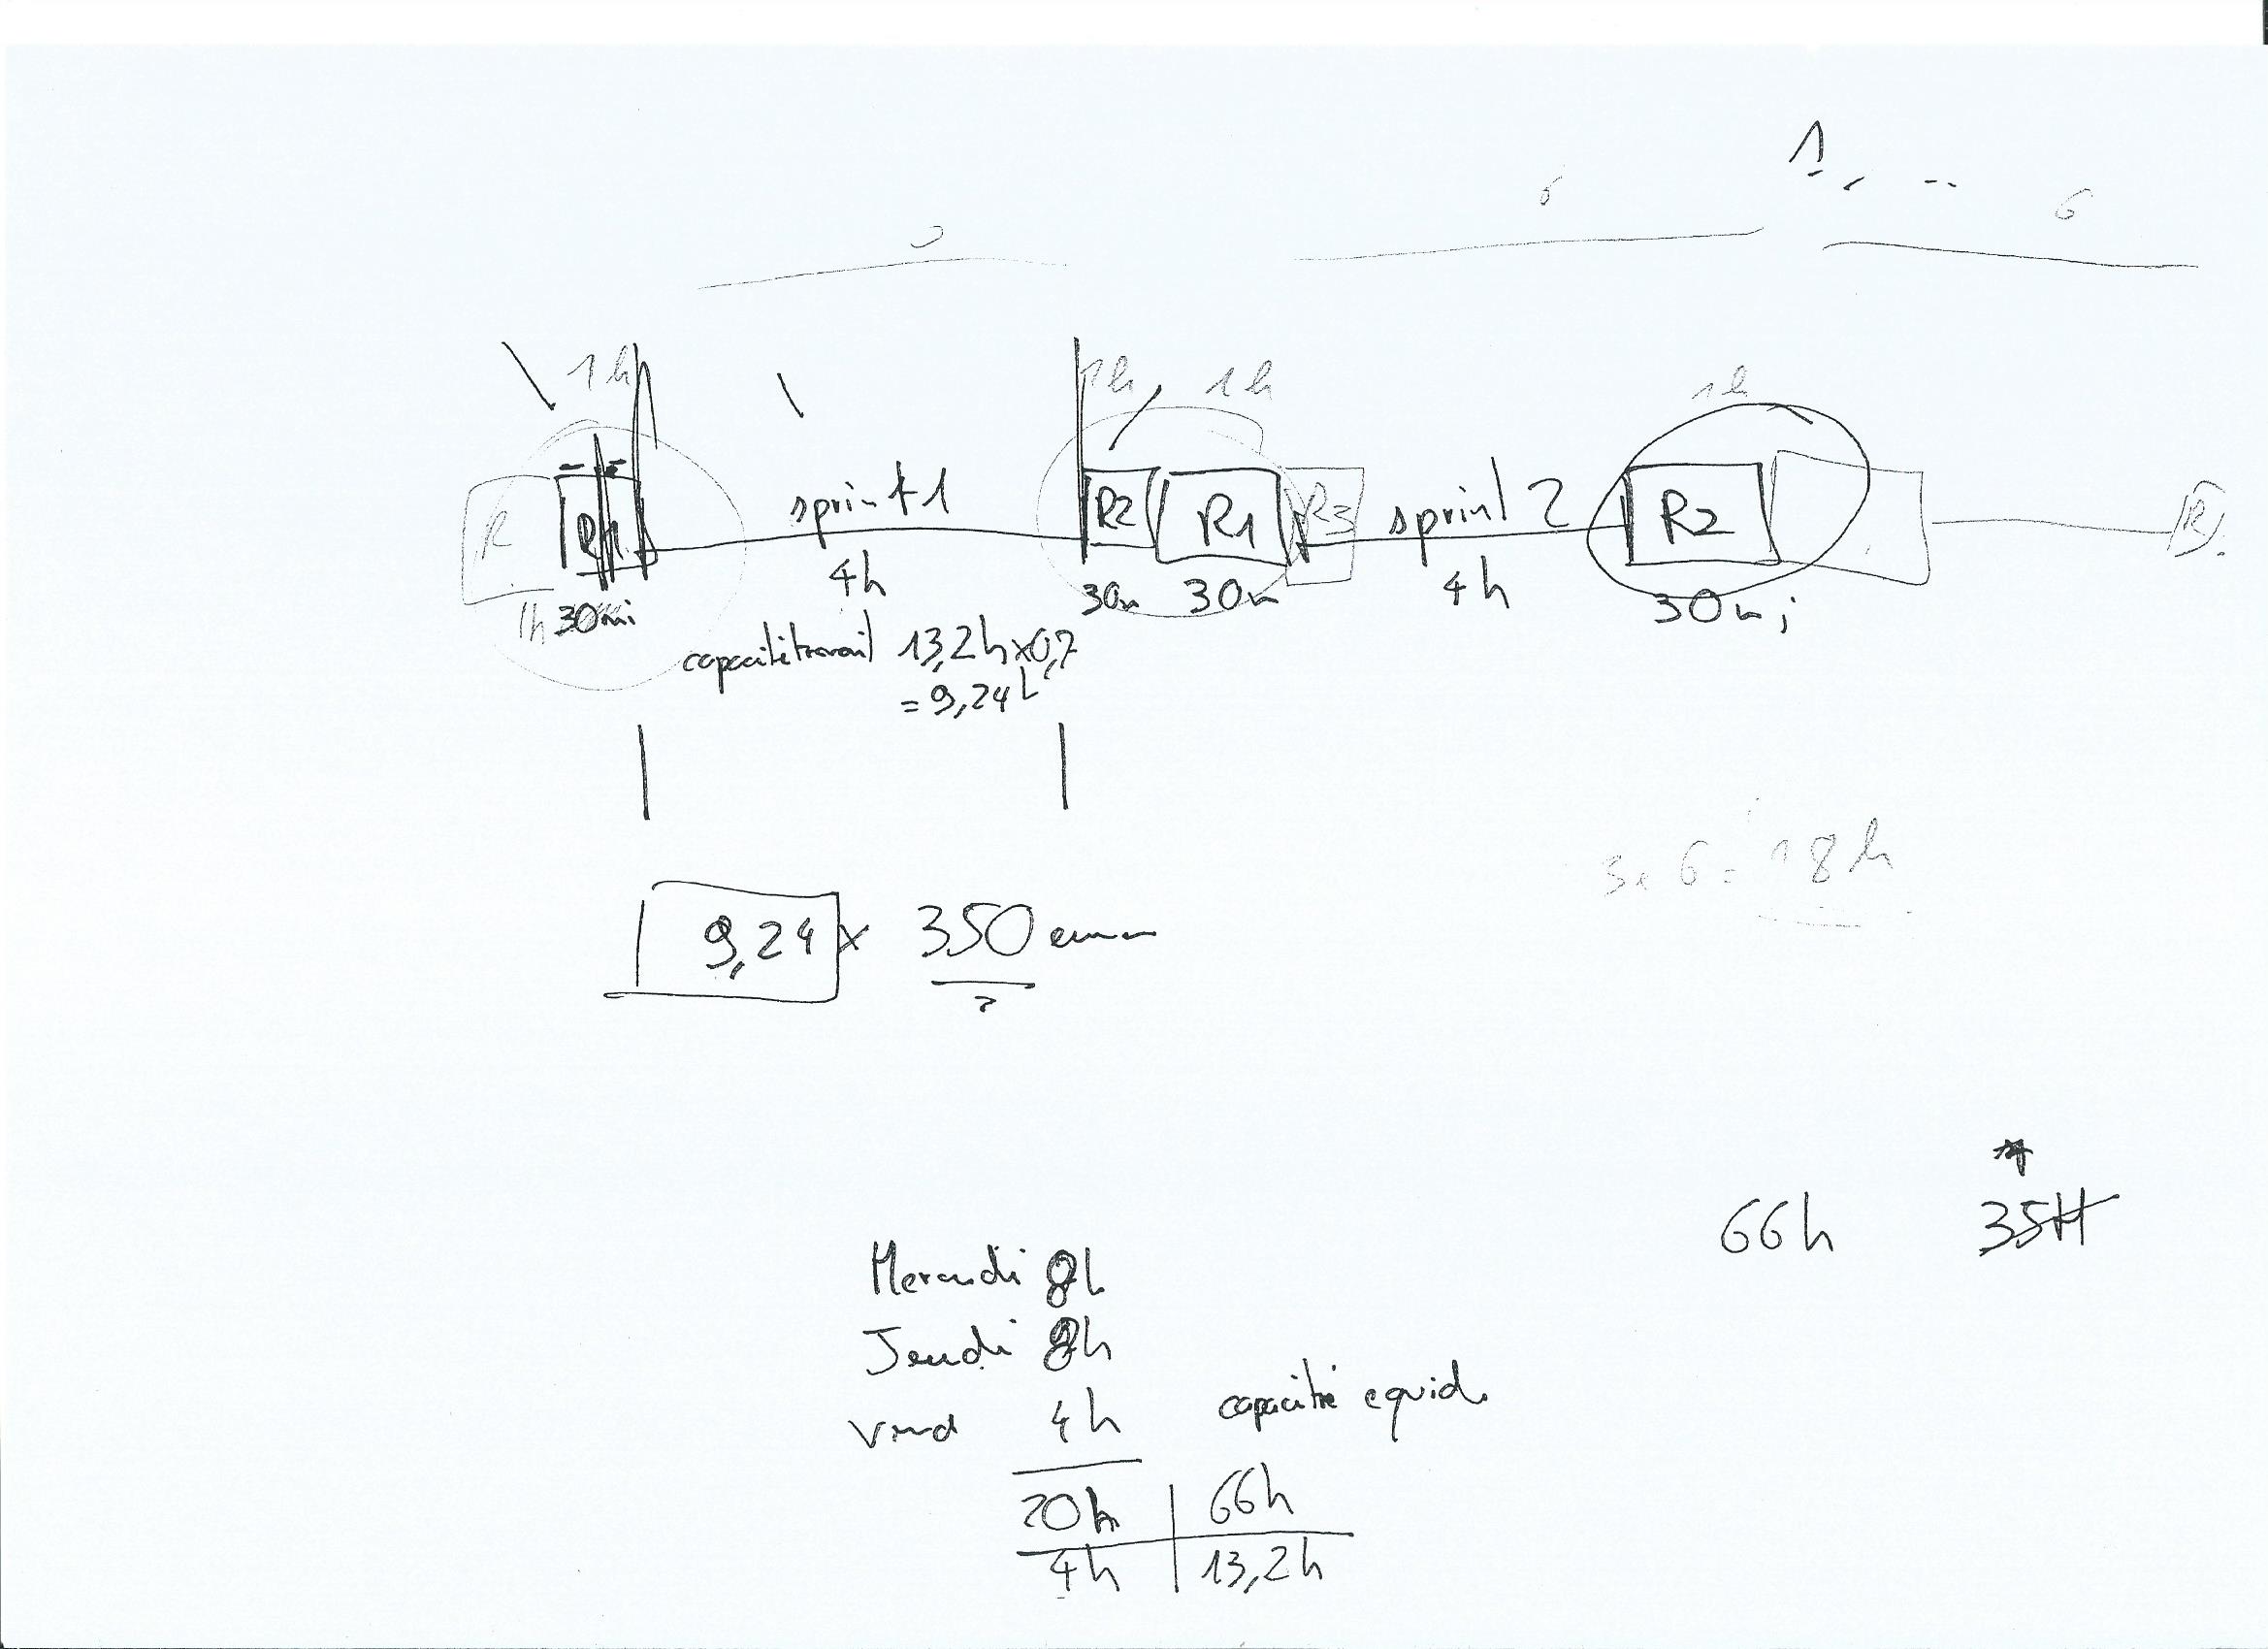 1, --
6
6
1h
1h
1h
1h
R
R1
sprint 1
R2
R1
R3
sprint 2
R2
R
1h 30mi
4h
30m
30m
4h
30mi
capacité travail 13,2h x 0,7
= 9,24h
9,24 x 350
?
3 x 6 = 18h
66h
35H
Mercredi 8h
Jeudi 8h
Vend 4h
capacité equid.
20h 66h
4h 13,2h